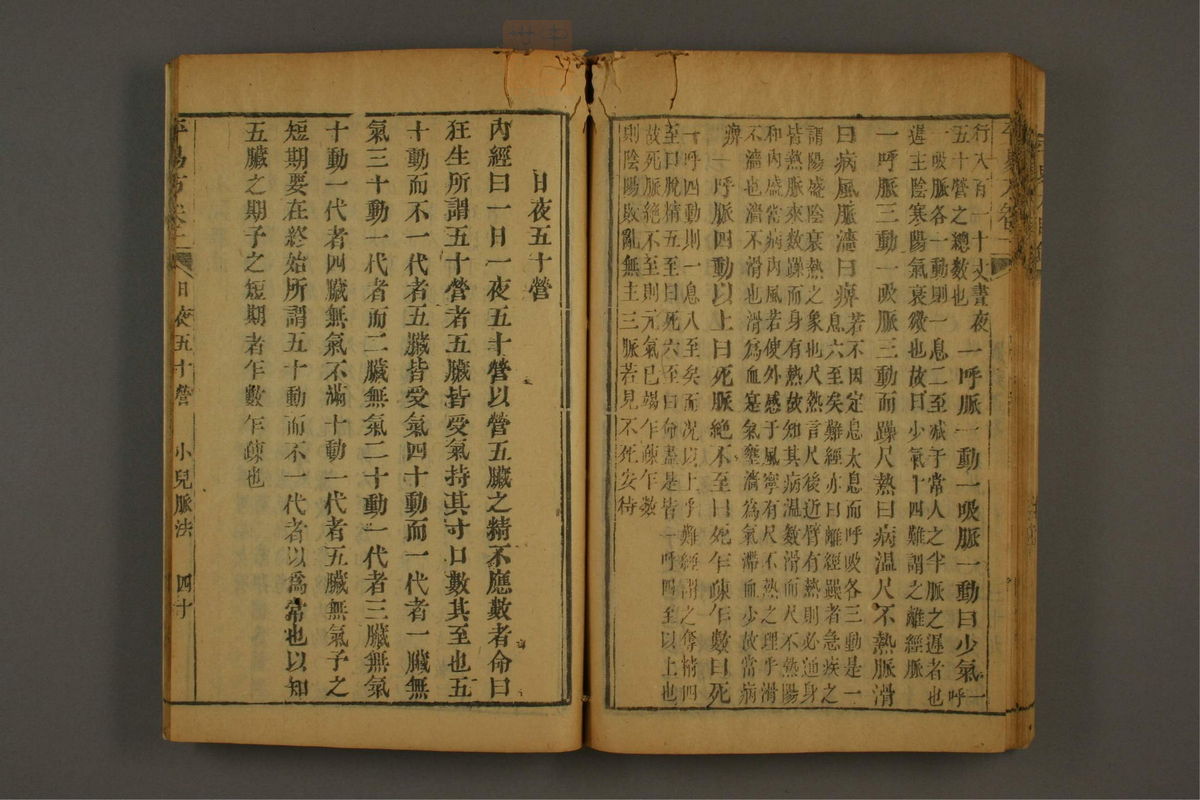 行八百一十丈晝夜
五十營之總數也
一呼脈一動一吸脈一動曰少氣
一呼
一吸脈各一動則一息二至減于常人之半脈之遲者也
遲主陰寒陽氣衰微也故曰少氣十四難謂之離經脈
一呼脈三動一吸脈三動而躁尺熱曰病温尺不熱脈滑
曰病風脈濇曰痺
若不因定息太息而呼吸各三動是一
息六至矣難經亦曰離經躁者急疾之
謂陽盛陰衰熱之象也尺熱言尺後近臂有熱則必通身
皆熱脈來數躁而身有熱故知其病温數滑而尺不熱陽
和内盛當病内風若使外感于風寧有尺不熱之理乎滑
不濇也濇不滑也滑爲血實氣壅濇爲氣滯血少故當病
痺
一呼脈四動以上曰死脈絕不至曰死乍疎乍數曰死
一呼四動則一息八至矣而况以上乎難經謂之奪精四
至曰脫精五至曰死六至曰命盡是皆一呼四至以上也
故死脈絕不至則元氣已竭乍疎乍數
則陰陽敗亂無主三脈若見不死安待
日夜五十營
內經曰一日一夜五十營以營五臟之精不應數者命曰
狂生所謂五十營者五臟皆受氣持其寸口數其至也五
十動而不一代者五臟皆受氣四十動而一代者一臟無
氣三十動一代者而二臟無氣二十動一代者三臟無氣
十動一代者四臟無氣不滿十動一代者五臟無氣子之
短期要在終始所謂五十動而不一代者以爲常也以知
五臟之期子之短期者乍數乍疎也
日夜五十營 小兒脈法 四十